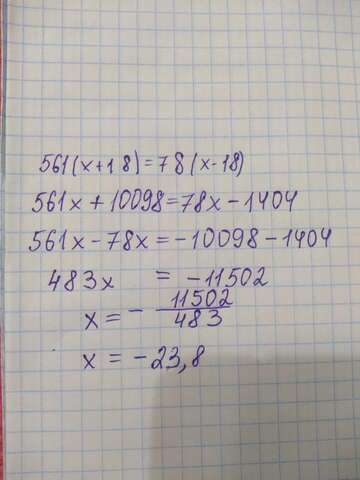 561(x+18)=78(x-18)
561x+10098=78x-1404
561x-78x=-10098-1404
483x = -11502
x = - 11502/483
x = -23,8